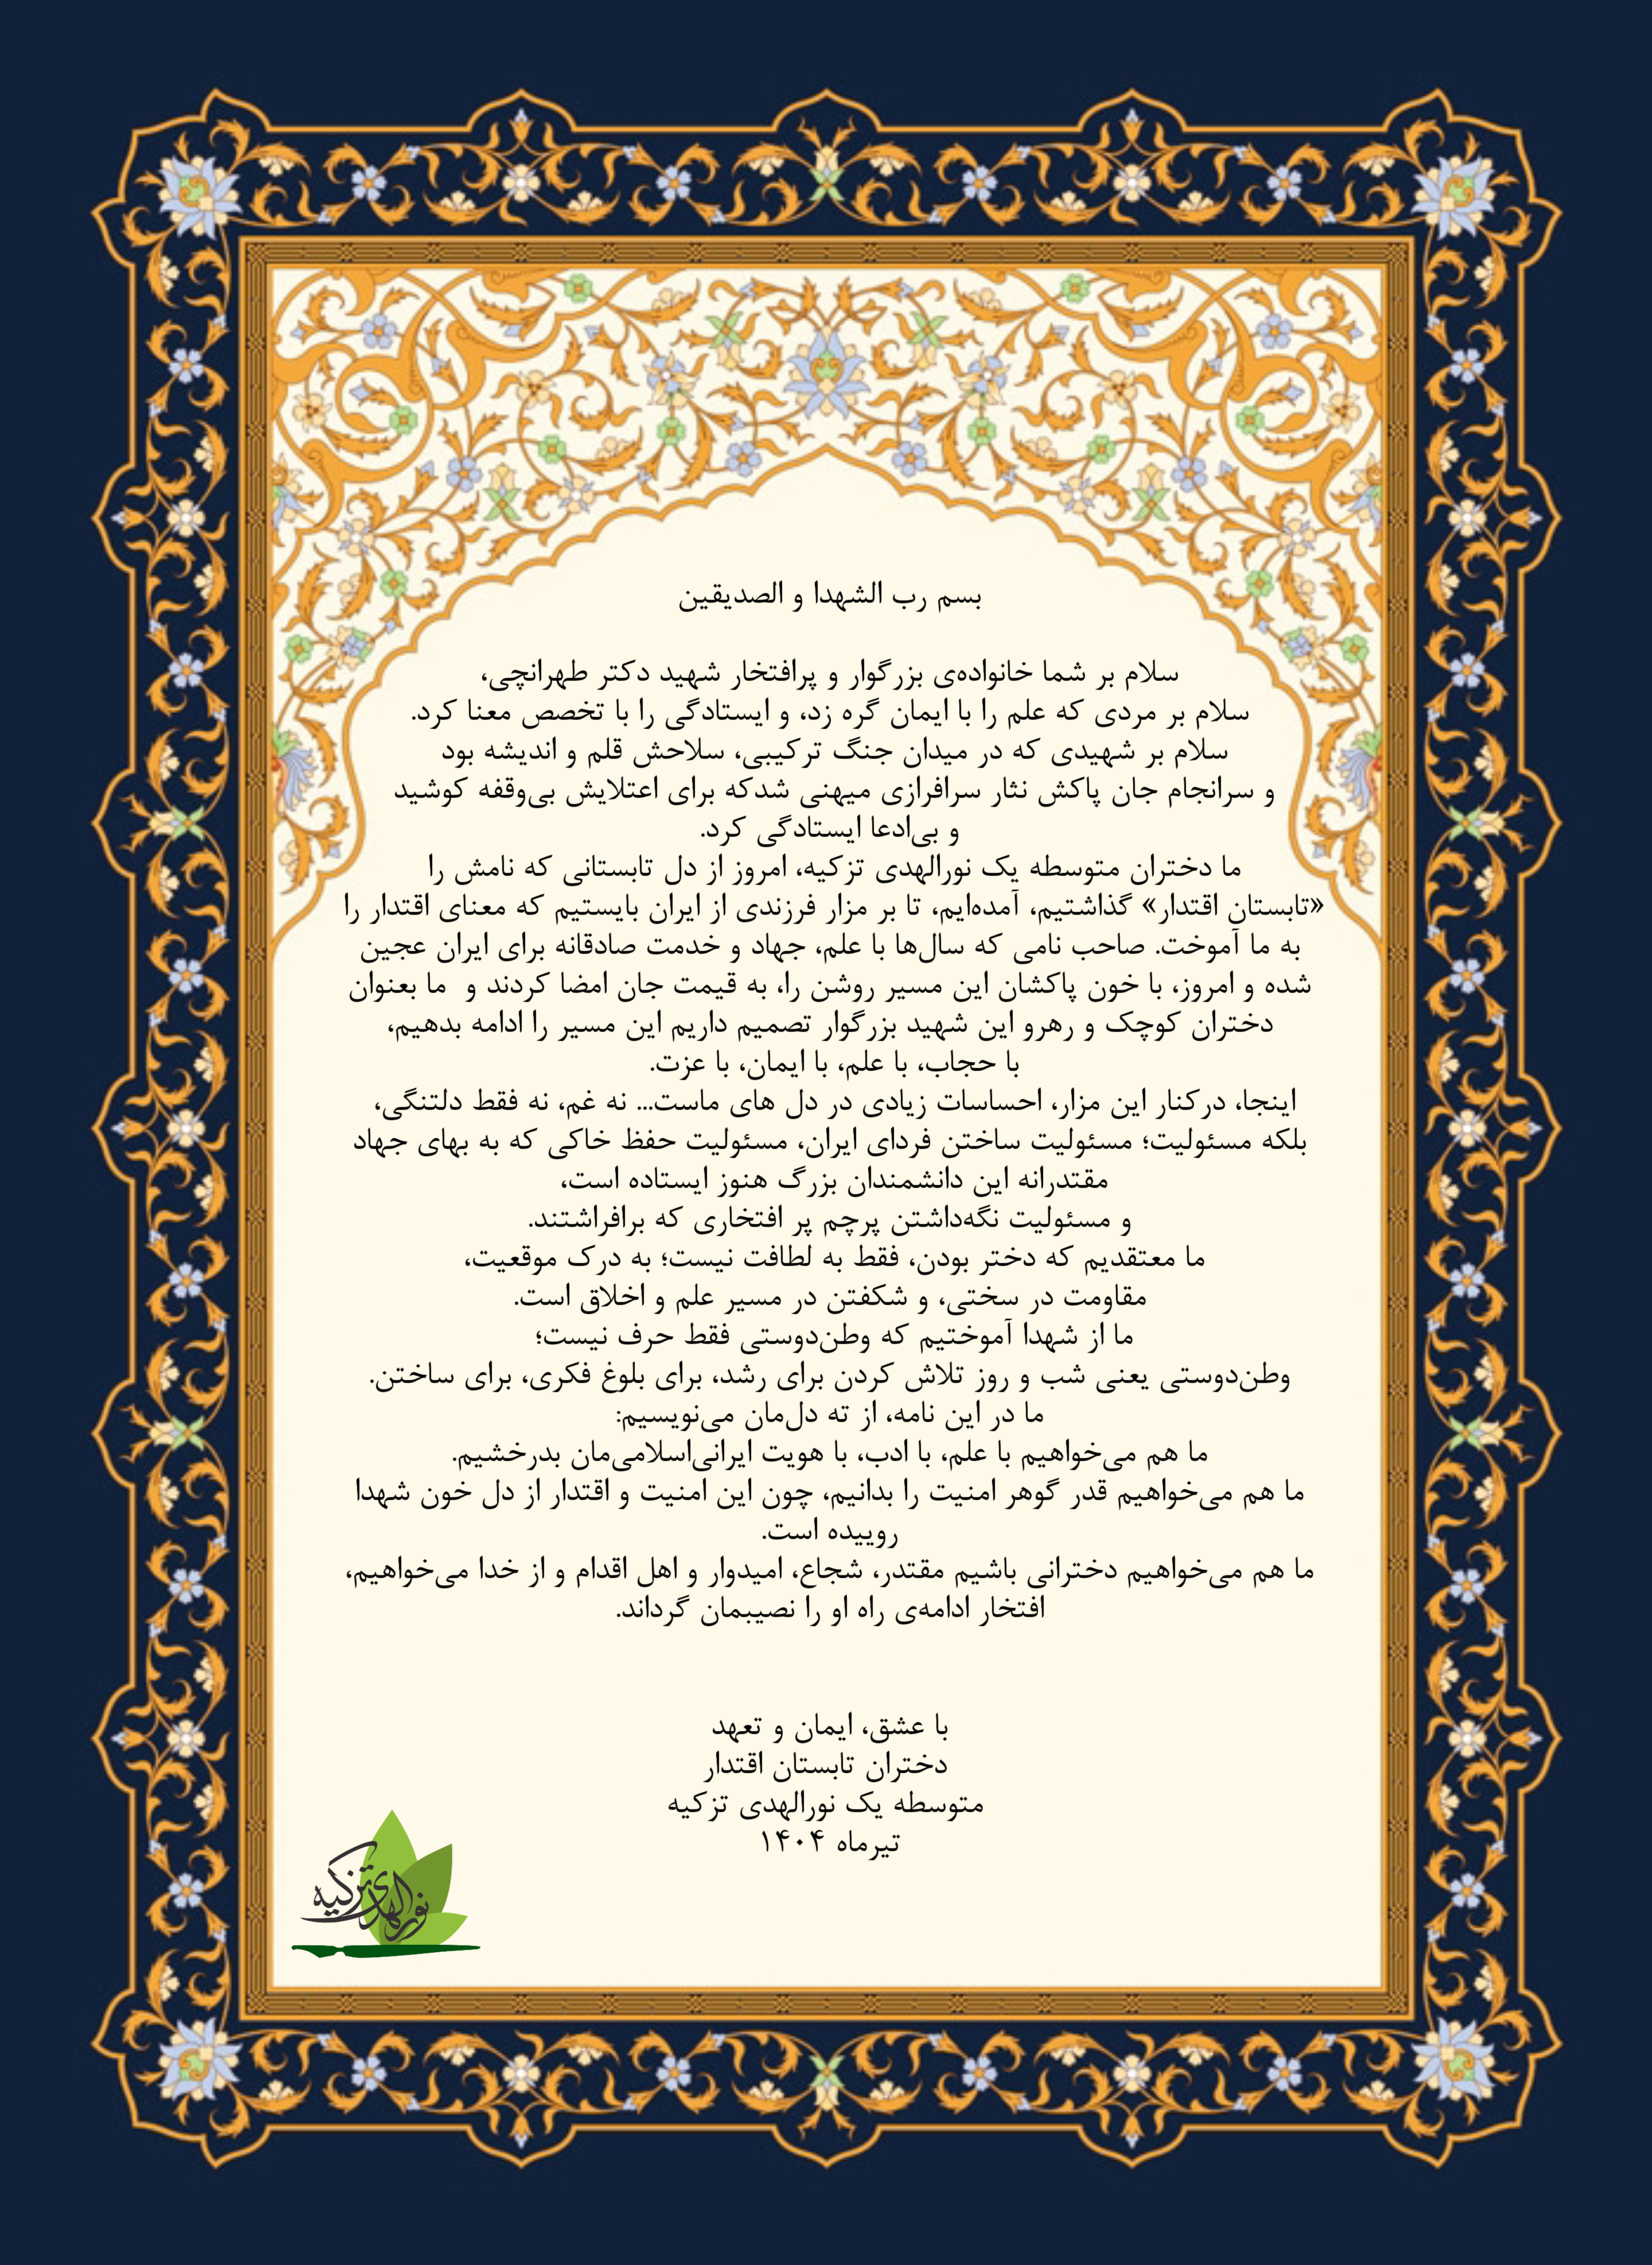 بسم رب الشهدا و الصدیقین
سلام بر شما خانواده‌ی بزرگوار و پرافتخار شهید دکتر طهرانچی،
سلام بر مردی که علم را با ایمان گره زد، و ایستادگی را با تخصص معنا کرد.
سلام بر شهیدی که در میدان جنگ ترکیبی، سلاحش قلم و اندیشه بود
و سرانجام جان پاکش نثار سرافرازی میهنی شدکه برای اعتلایش بی‌وقفه کوشید
و بی‌ادعا ایستادگی کرد.
ما دختران متوسطه یک نورالهدی تزکیه، امروز از دل تابستانی که نامش را
«تابستان اقتدار» گذاشتیم، آمده‌ایم، تا بر مزار فرزندی از ایران بایستیم که معنای اقتدار را
به ما آموخت. صاحب نامی که سال‌ها با علم، جهاد و خدمت صادقانه برای ایران عجین
شده و امروز، با خون پاکشان این مسیر روشن را، به قیمت جان امضا کردند و ما بعنوان
دختران کوچک و رهرو این شهید بزرگوار تصمیم داریم این مسیر را ادامه بدهیم،
با حجاب، با علم، با ایمان، با عزت.
اینجا، درکنار این مزار، احساسات زیادی در دل های ماست... نه غم، نه فقط دلتنگی،
بلکه مسئولیت؛ مسئولیت ساختن فردای ایران، مسئولیت حفظ خاکی که به بهای جهاد
مقتدرانه این دانشمندان بزرگ هنوز ایستاده است،
و مسئولیت نگه‌داشتن پرچم پر افتخاری که برافراشتند.
ما معتقدیم که دختر بودن، فقط به لطافت نیست؛ به درک موقعیت،
مقاومت در سختی، و شکفتن در مسیر علم و اخلاق است.
ما از شهدا آموختیم که وطن‌دوستی فقط حرف نیست؛
وطن‌دوستی یعنی شب و روز تلاش کردن برای رشد، برای بلوغ فکری، برای ساختن.
ما در این نامه، از ته دل‌مان می‌نویسیم:
ما هم می‌خواهیم با علم، با ادب، با هویت ایرانی‌اسلامی‌مان بدرخشیم.
ما هم می‌خواهیم قدر گوهر امنیت را بدانیم، چون این امنیت و اقتدار از دل خون شهدا
روییده است.
ما هم می‌خواهیم دخترانی باشیم مقتدر، شجاع، امیدوار و اهل اقدام و از خدا می‌خواهیم،
افتخار ادامه‌ی راه او را نصیبمان گرداند.
با عشق، ایمان و تعهد
دختران تابستان اقتدار
متوسطه یک نورالهدی تزکیه
تیرماه ۱۴۰۴
نورالهدی تزکیه